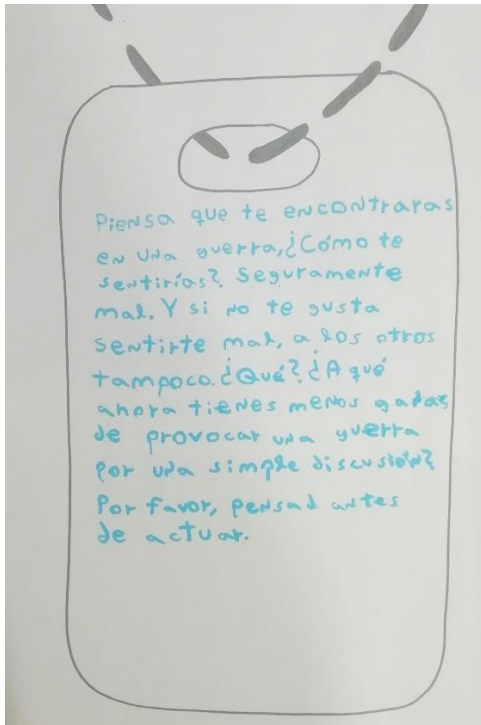 Piensa que te encontraras
en una guerra,¿Cómo te
sentirías? Seguramente
mal. Y si no te gusta
sentirte mal, a los otros
tampoco. ¿Qué? ¿A qué
ahora tienes menos gadas
de provocar una guerra
por una simple discusión?
Por favor, pensad antes
de actuar.